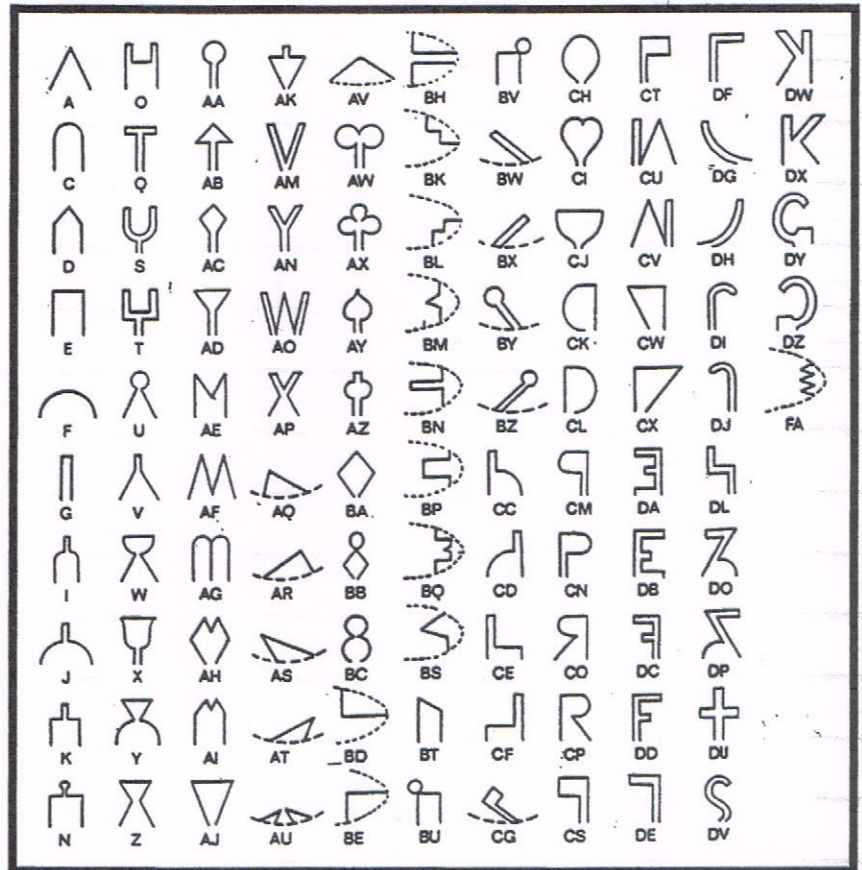 A O AA AK AV BH BV CH CT DF DW
C Q AB AM AW BK BW CI CU DG DX
D S AC AN AX BL BX CJ CV DH DY
E T AD AO AY BM BY CK CW DI DZ
F U AE AP AZ BN BZ CL CX DJ FA
G V AF AQ BA BP CC CM DA DL
I W AG AR BB BQ CD CN DB DO
J X AH AS BC BS CE CO DC DP
K Y AI AT BD BT CF CP DD DU
N Z AJ AU BE BU CG CS DE DV